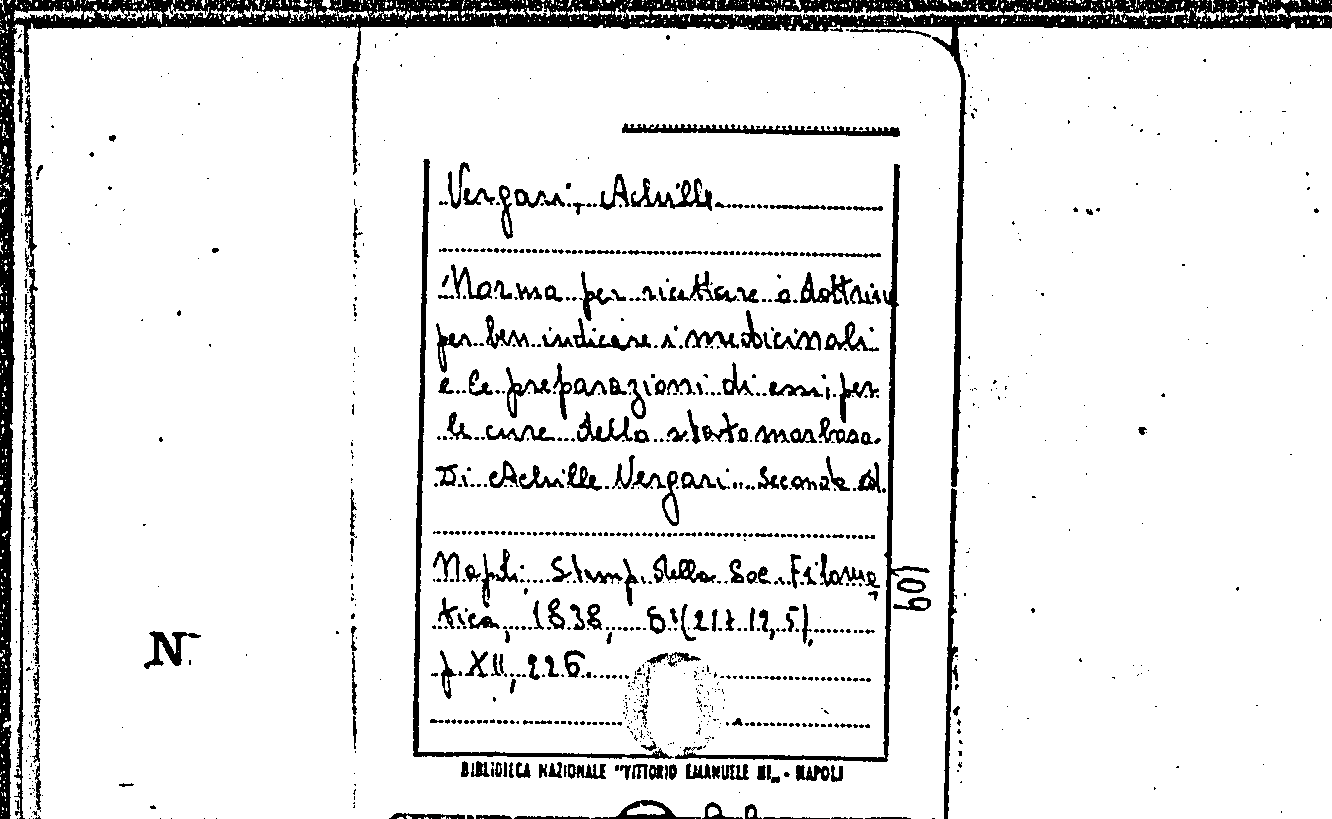 Vergari, Achille
Norma per ricettare o dottrina
per ben indicare i medicinali
e le preparazioni di essi, per
le cure dello stato morboso.
Di Achille Vergari. Seconda ed.
Napoli, Stamp. della Soc. Filoma
tica, 1838, 8°(21x12,5),
p. XII, 226.
109
N
BIBLIOTECA NAZIONALE "VITTORIO EMANUELE III„ - NAPOLI